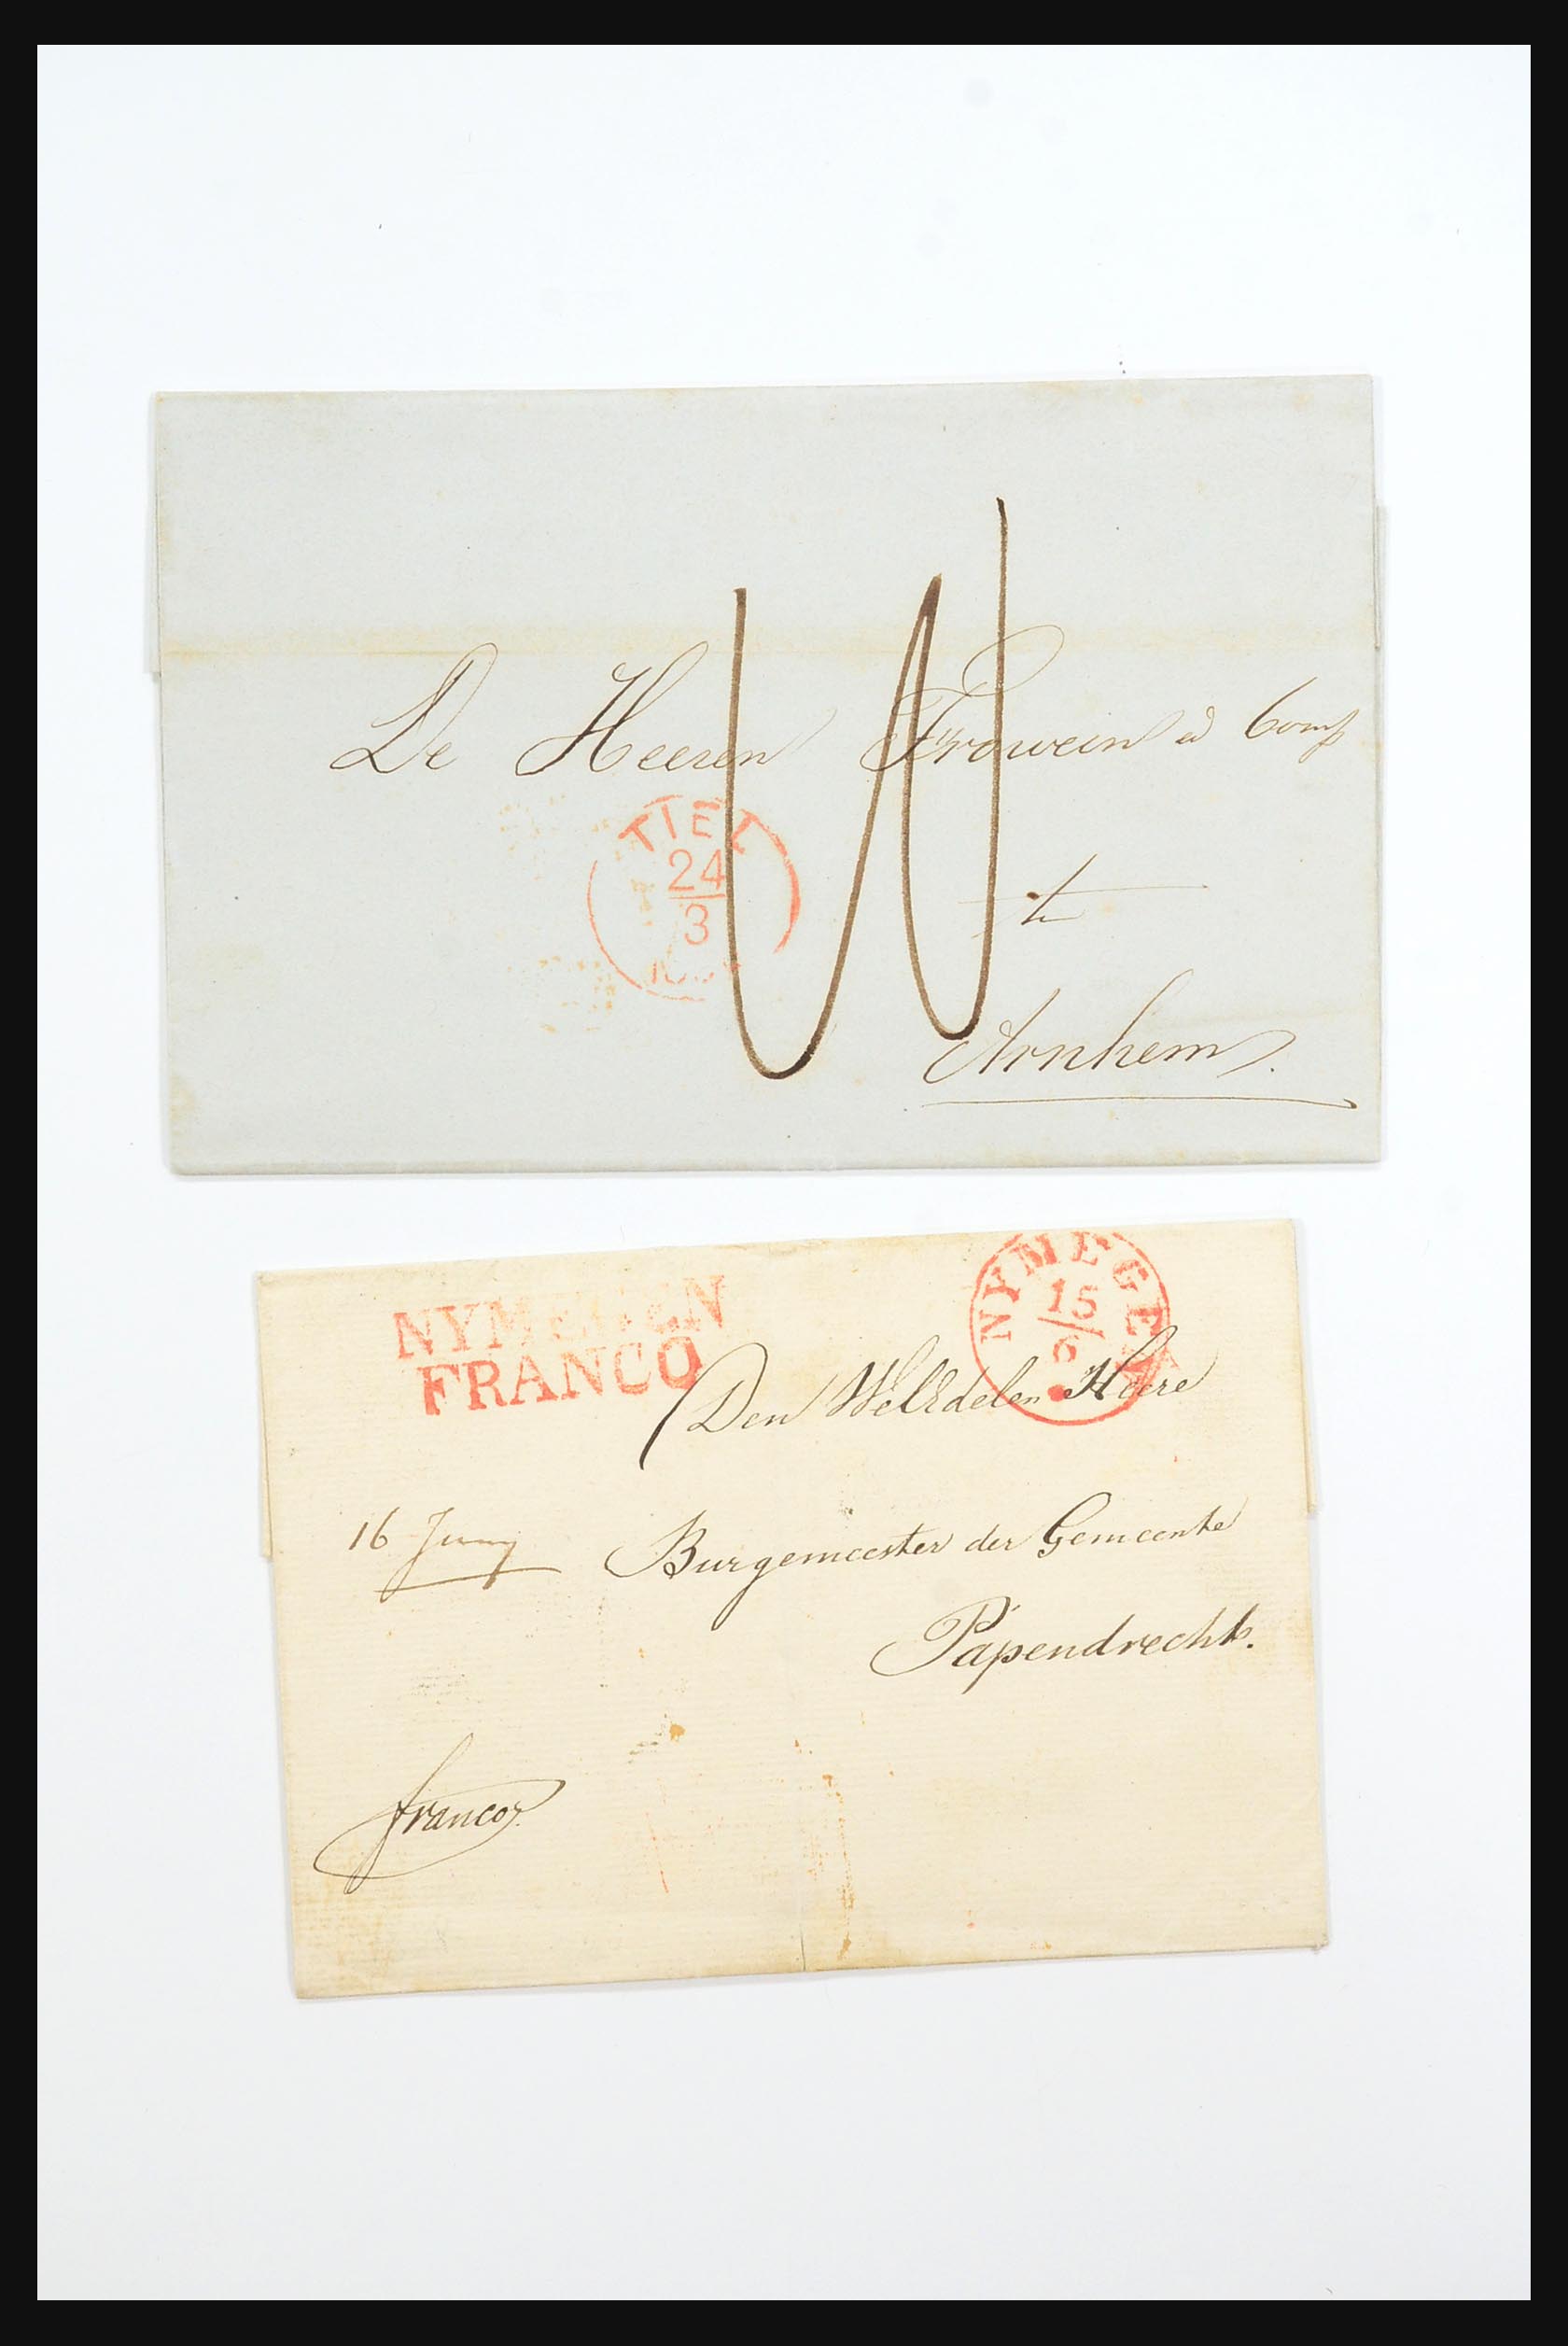 De Heeren Frowein & Comp
TIEL
24
3
te
Arnhem.
NYMEGEN
FRANCO
NYMEGEN
15
6
Den WelEdelen Heere
16 Juny
Burgemeester der Gemeente
Papendrecht.
franco